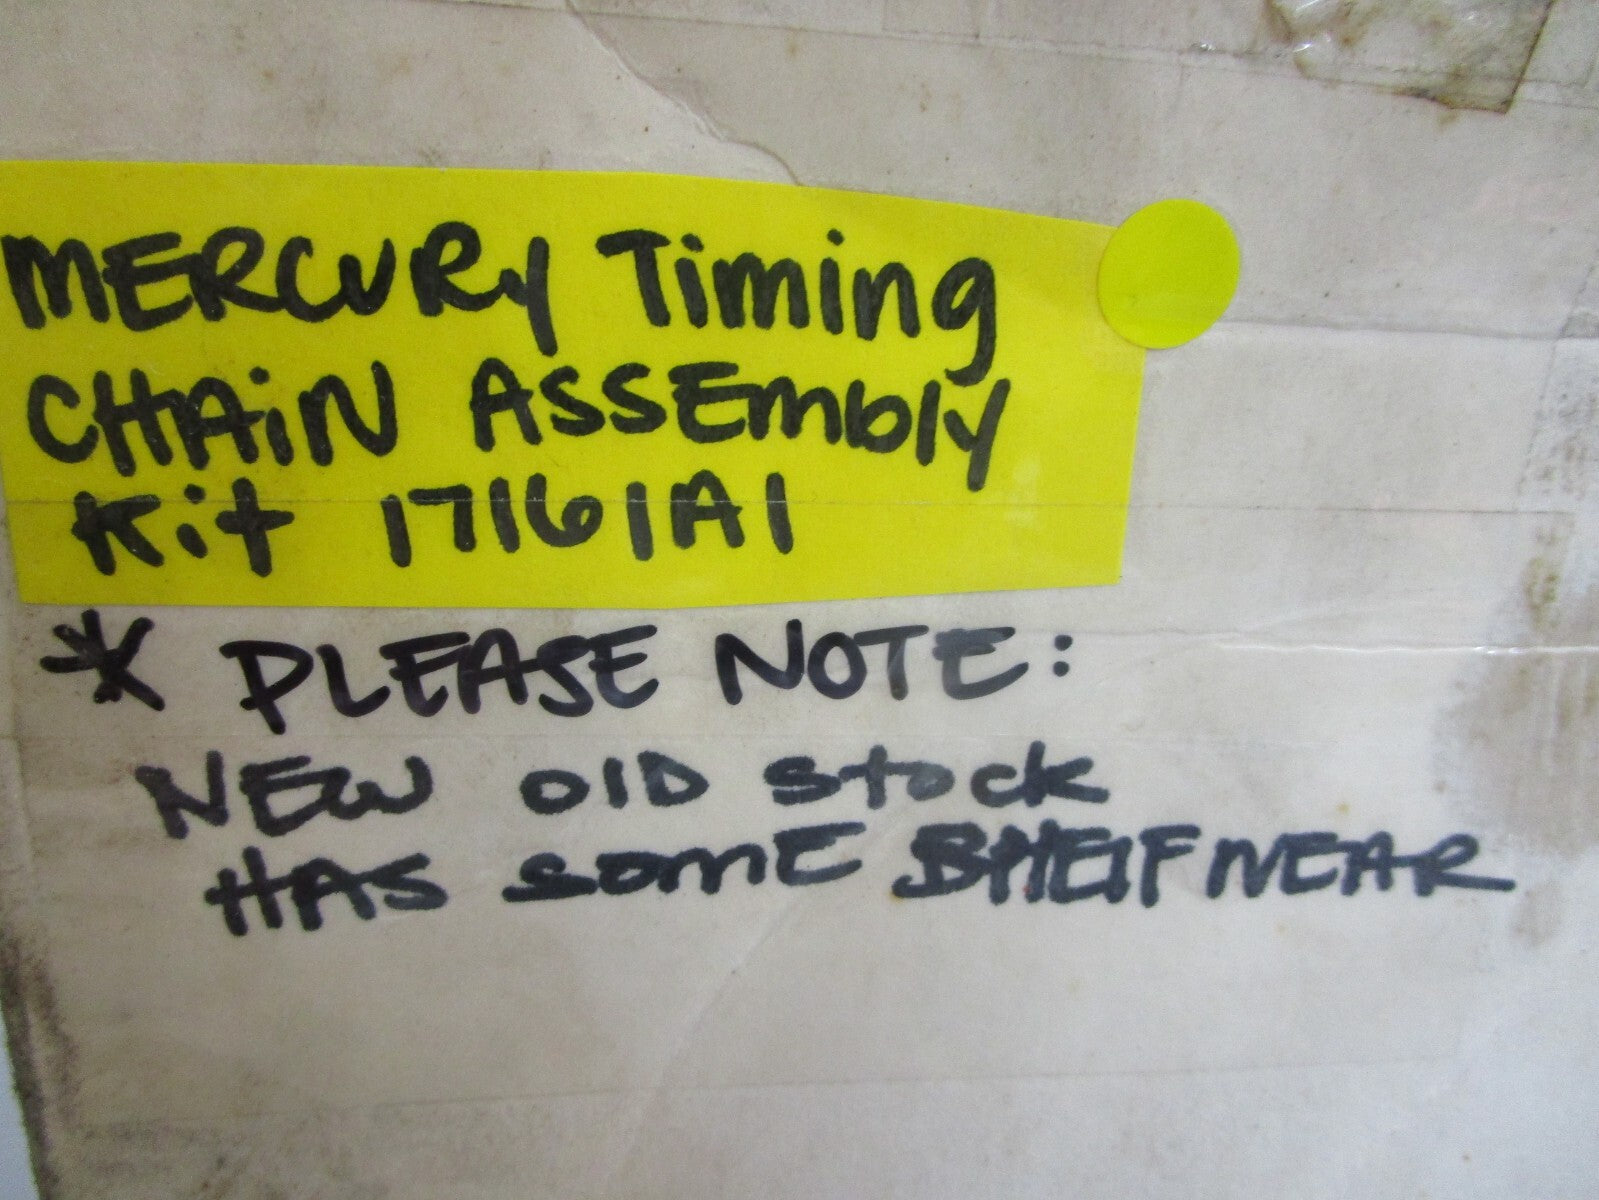 MERCURy Timing
CHAiN ASSEmbly
Kit 17161A1
* PLEASE NOTE:
NEW OlD stock
HAS somE SHElF WEAR